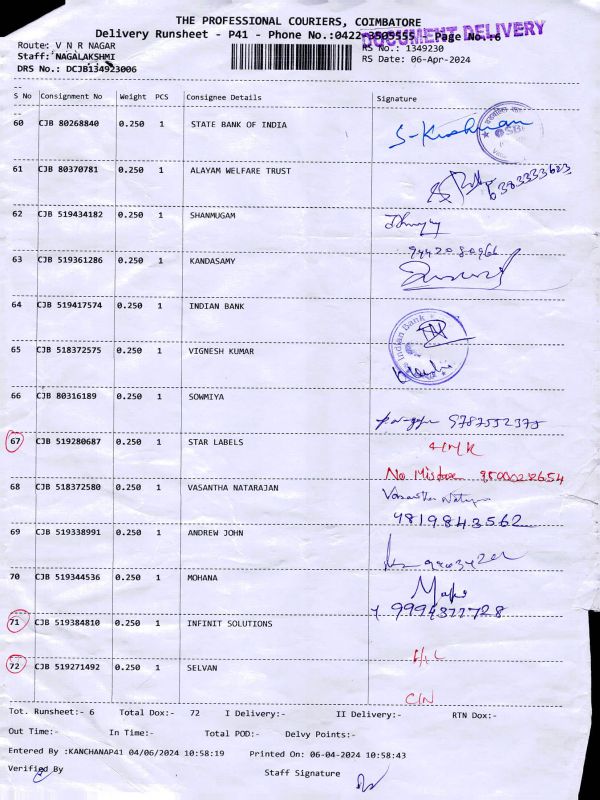 THE PROFESSIONAL COURIERS, COIMBATORE
Delivery Runsheet - P41 - Phone No.:0422-3505555 Page No.:6
DOCUMENT DELIVERY
Route: V N R NAGAR RS No.: 1349230
Staff: NAGALAKSHMI RS Date: 06-Apr-2024
DRS No.: DCJB134923006
S No Consignment No Weight PCS Consignee Details Signature
60 CJB 80268840 0.250 1 STATE BANK OF INDIA
SBI
61 CJB 80370781 0.250 1 ALAYAM WELFARE TRUST
6383333623
62 CJB 519434182 0.250 1 SHANMUGAM
9442080966
63 CJB 519361286 0.250 1 KANDASAMY
64 CJB 519417574 0.250 1 INDIAN BANK
Indian Bank
65 CJB 518372575 0.250 1 VIGNESH KUMAR
66 CJB 80316189 0.250 1 SOWMIYA
67 CJB 519280687 0.250 1 STAR LABELS
68 CJB 518372580 0.250 1 VASANTHA NATARAJAN
4819843562
69 CJB 519338991 0.250 1 ANDREW JOHN
70 CJB 519344536 0.250 1 MOHANA
71 CJB 519384810 0.250 1 INFINIT SOLUTIONS
72 CJB 519271492 0.250 1 SELVAN
C/N
Tot. Runsheet:- 6 Total Dox:- 72 I Delivery:- II Delivery:- RTN Dox:-
Out Time:- In Time:- Total POD:- Delvy Points:-
Entered By :KANCHANAP41 04/06/2024 10:58:19 Printed On: 06-04-2024 10:58:43
Verified By Staff Signature